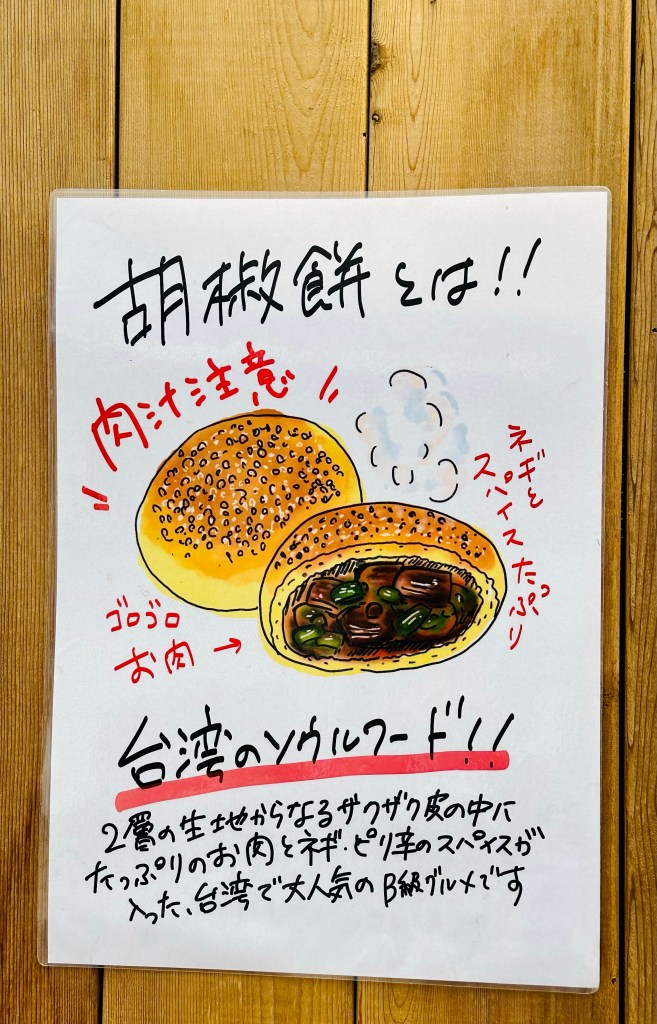 胡椒餅とは!!
肉汁注意
ネギと
スパイスたっぷり
ゴロゴロ
お肉→
台湾のソウルフード!!
2層の生地からなるザクザク皮の中に
たっぷりのお肉とネギ・ピリ辛のスパイスが
入った、台湾で大人気のB級グルメです